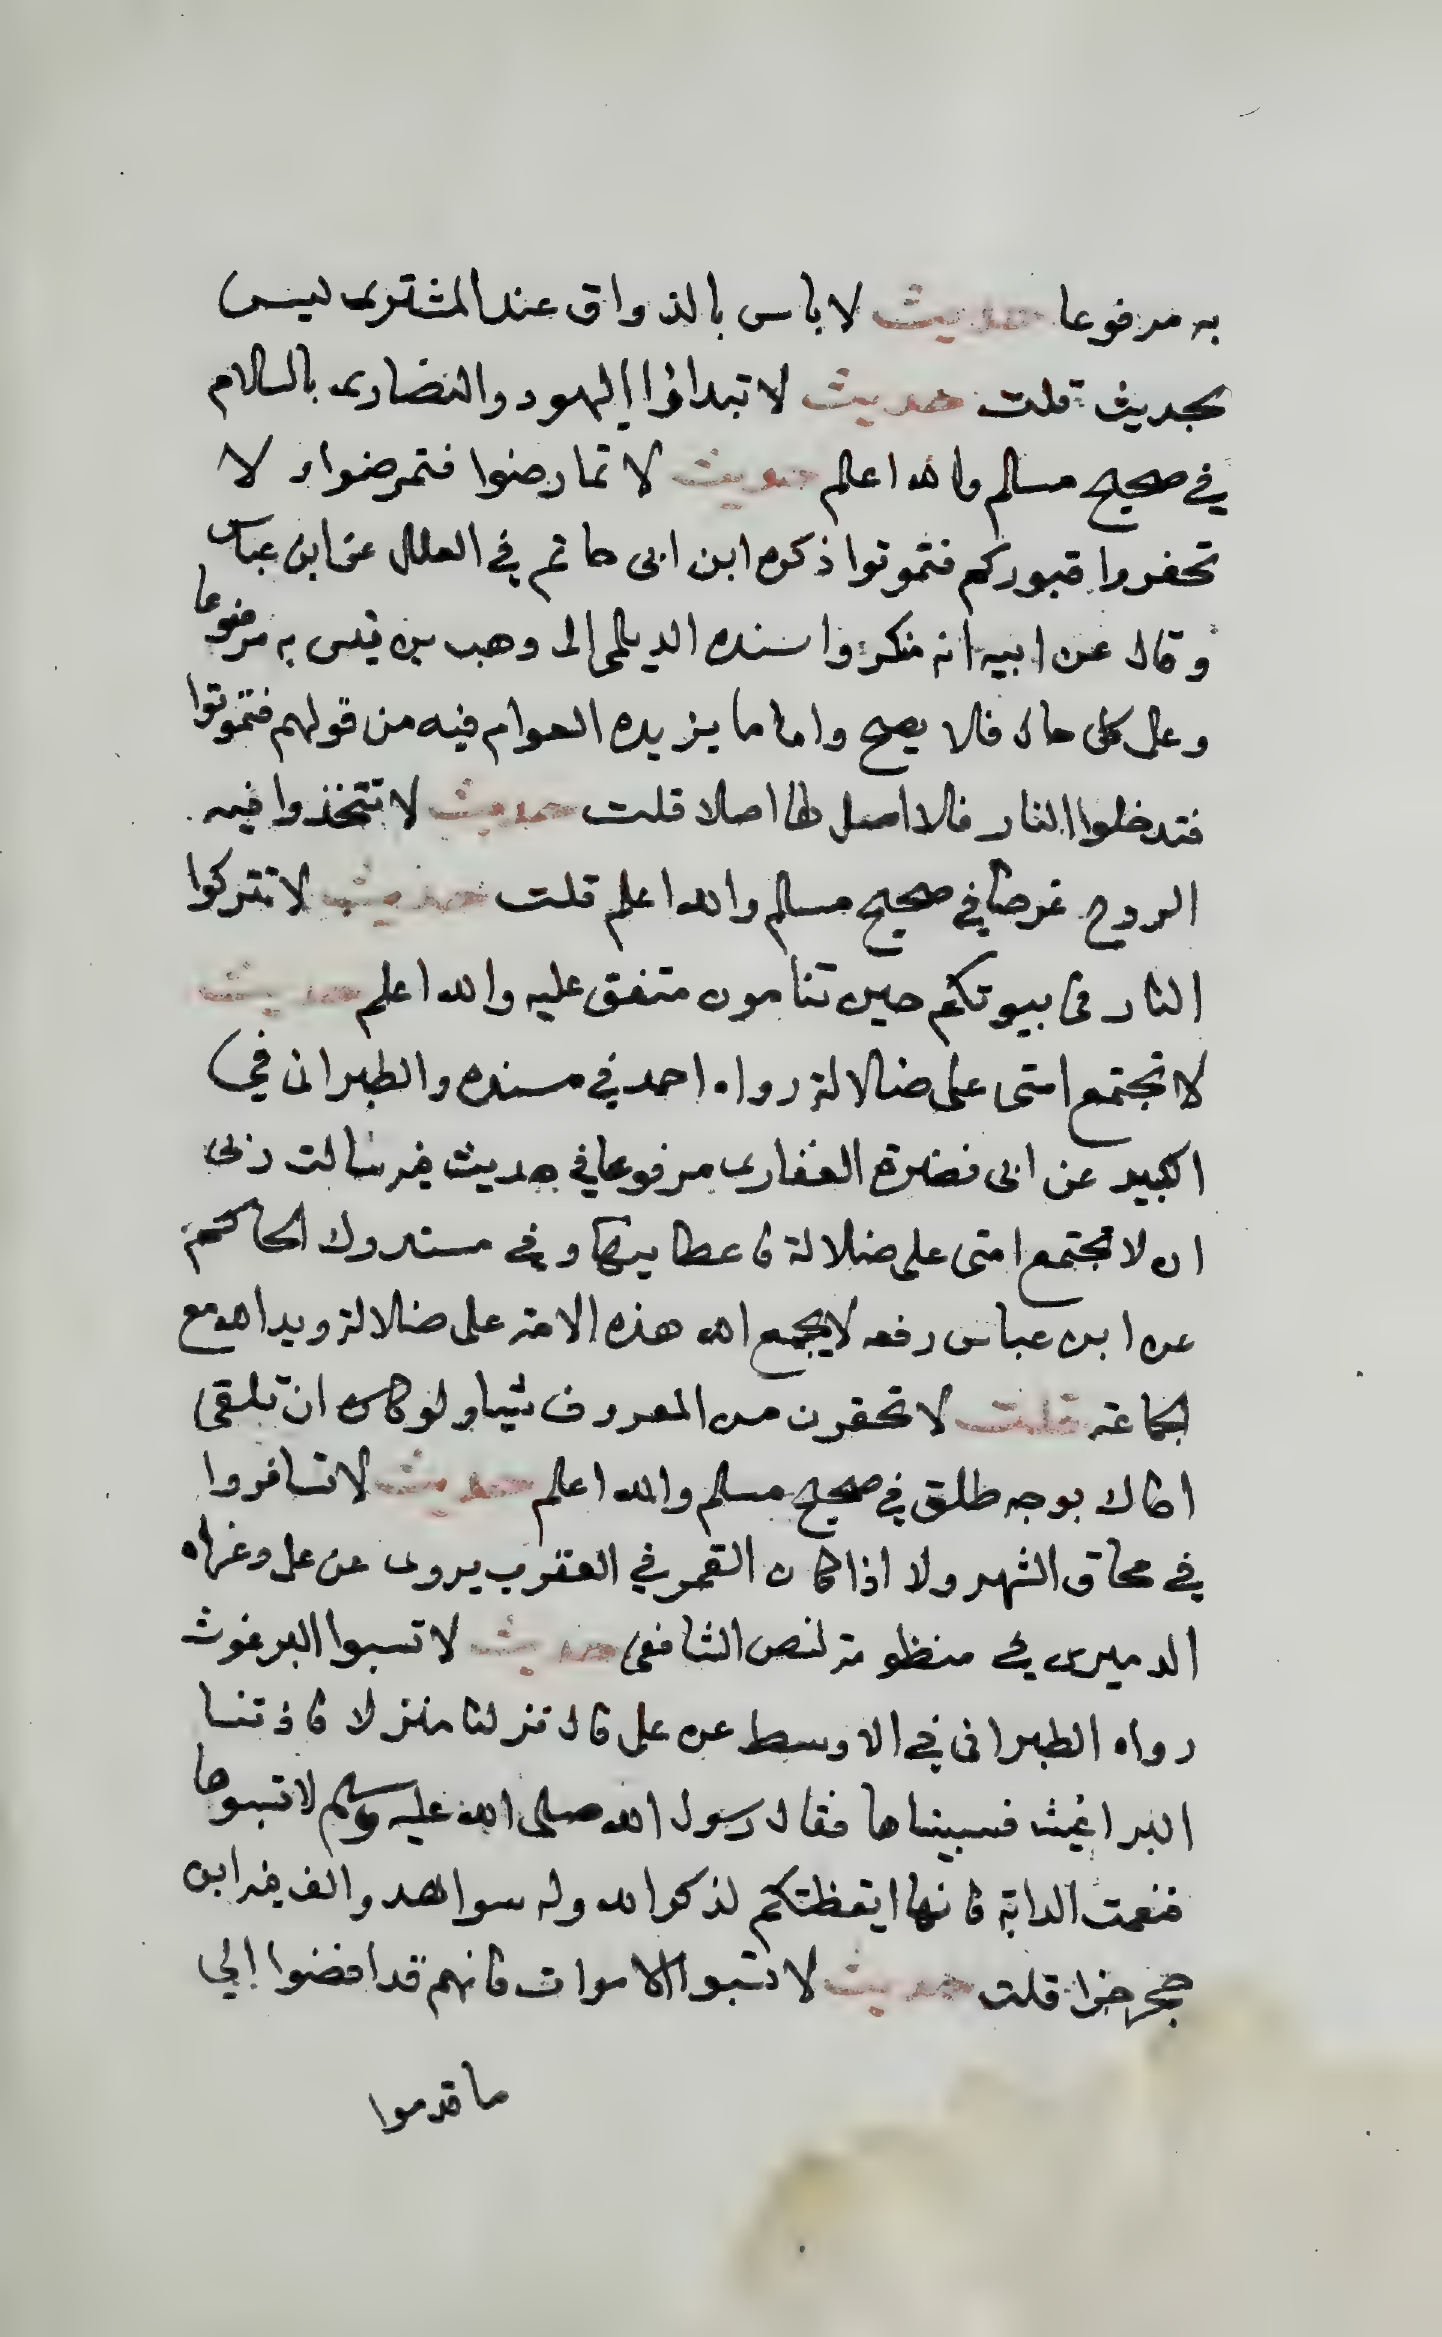 به مرفوعا حديث لا باس بالذواق عند المشترى ليس
بحديث قلت حديث لا تبداؤا اليهود والنصارى بالسلام
في صحيح مسلم والله اعلم حديث لا تمارضوا فتمرضوا ولا
تحفروا قبوركم فتموتوا ذكره ابن ابى حاتم في العلل عن ابن عباس
وقال عن ابيه انه منكر واسنده الديلمى الى وهب بن قيس به مرفوعا
وعلى كل حال فلا يصح واما ما يزيده العوام فيه من قولهم فتموتوا
فتدخلوا النار فلا اصل لها اصلا قلت حديث لا تتخذوا فيه
الروح غرضا في صحيح مسلم والله اعلم قلت حديث لا تتركوا
النار فى بيوتكم حين تنامون متفق عليه والله اعلم حديث
لا تجتمع امتى على ضلالة رواه احمد في مسنده والطبرانى في
الكبير عن ابى نضرة الغفارى مرفوعا في حديث فيه سالت ربى
ان لا تجتمع امتى على ضلالة فاعطانيها وفي مستدرك الحاكم
عن ابن عباس رفعه لا يجمع الله هذه الامة على ضلالة ويد الله مع
الجماعة قلت لا تحقرن من المعروف شيا ولو كان ان تلقى
اخاك بوجه طلق في صحيح مسلم والله اعلم حديث لا تسافروا
في محاق الشهر ولا اذا كان القمر في العقرب يروى عن على وعزاه
الدميرى في منظومة لنص الشافعى حديث لا تسبوا البرغوث
رواه الطبرانى في الاوسط عن على قال نزلنا منزلا فاذتنا
البراغيث فسببناها فقال رسول الله صلى الله عليه وسلم لا تسبوها
فنعمت الدابة فانها ايقظتكم لذكر الله وله سواهد والف فيه ابن
حجر جزا قلت حديث لا تسبوا الاموات فانهم قد افضوا إلي
ما قدموا